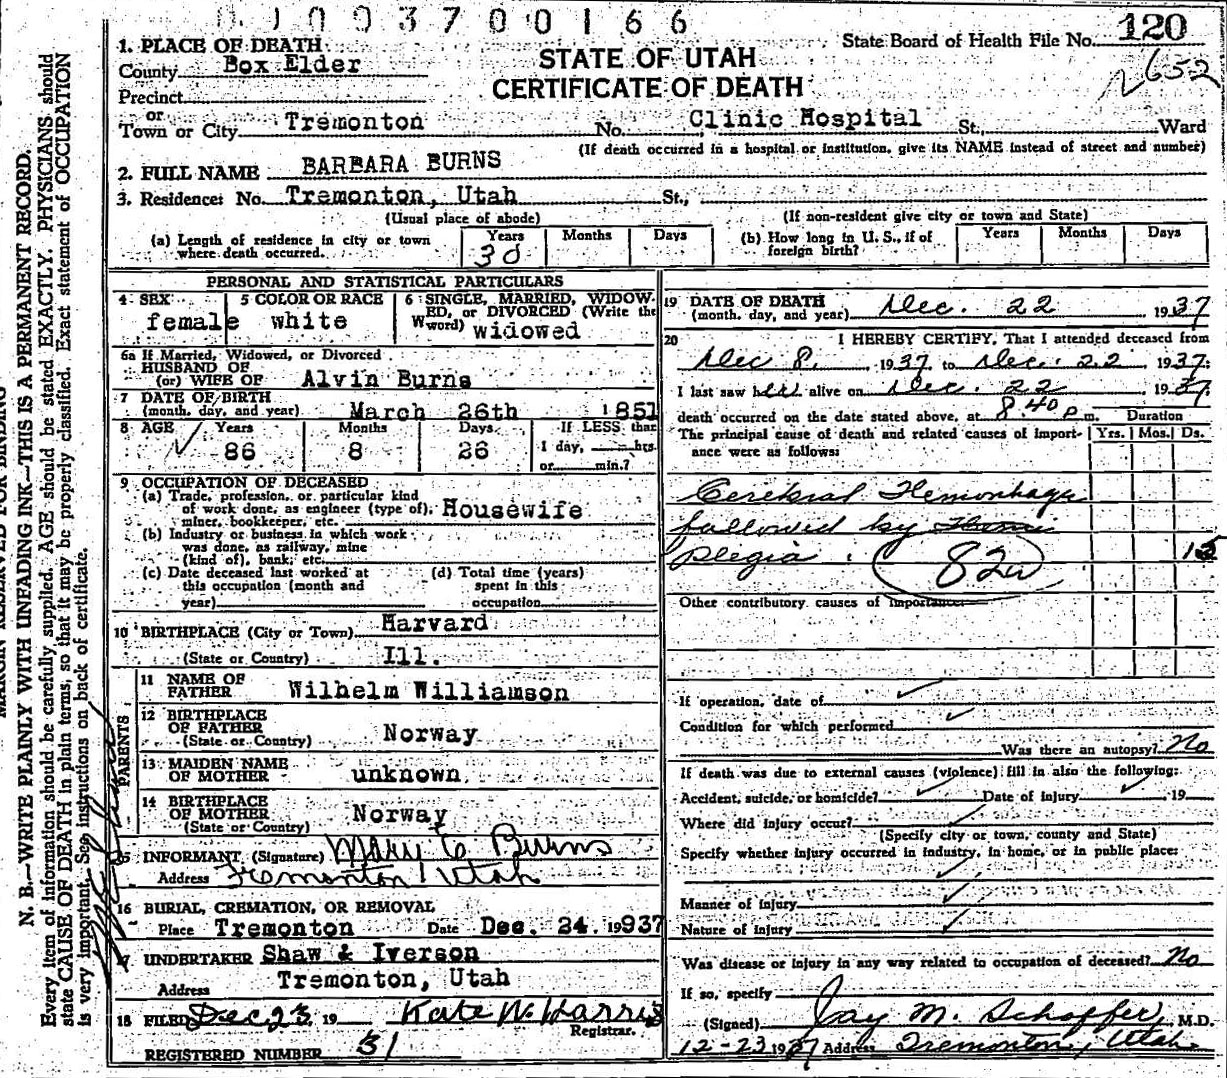 0 1 0 9 3 7 0 0 1 6 6
120
State Board of Health File No.
652
STATE OF UTAH
CERTIFICATE OF DEATH
1. PLACE OF DEATH
County Box Elder
Precinct
or
Town or City Tremonton No. Clinic Hospital St., Ward
(If death occurred in a hospital or institution, give its NAME instead of street and number)
2. FULL NAME BARBARA BURNS
3. Residence: No. Tremonton, Utah St.,
(Usual place of abode) (If non-resident give city or town and State)
(a) Length of residence in city or town where death occurred. Years 30 Months Days
(b) How long in U. S., if of foreign birth? Years Months Days
PERSONAL AND STATISTICAL PARTICULARS
4 SEX female
5 COLOR OR RACE white
6 SINGLE, MARRIED, WIDOWED, or DIVORCED (Write the word) widowed
6a If Married, Widowed, or Divorced
HUSBAND OF
(or) WIFE OF Alvin Burns
7 DATE OF BIRTH
(month, day, and year) March 26th 1851
8 AGE Years 86 Months 8 Days 26
If LESS than
1 day, hrs.
or min.?
9 OCCUPATION OF DECEASED
(a) Trade, profession, or particular kind
of work done, as engineer (type of), Housewife
miner, bookkeeper, etc.
(b) Industry or business in which work
was done, as railway, mine
(kind of), bank, etc.
(c) Date deceased last worked at
this occupation (month and
year)
(d) Total time (years)
spent in this
occupation
10 BIRTHPLACE (City or Town) Harvard
(State or Country) Ill.
PARENTS
11 NAME OF
FATHER Wilhelm Williamson
12 BIRTHPLACE
OF FATHER Norway
(State or Country)
13 MAIDEN NAME
OF MOTHER unknown
14 BIRTHPLACE
OF MOTHER Norway
(State or Country)
15 INFORMANT, (Signature) Mary E Burns
Address Tremonton Utah
16 BURIAL, CREMATION, OR REMOVAL
Place Tremonton Date Dec. 24. 19937
17 UNDERTAKER Shaw & Iverson
Address Tremonton, Utah
18 FILED Dec 23, 19 Kate W. Harris
Registrar.
REGISTERED NUMBER 51
19 DATE OF DEATH
(month, day, and year) Dec. 22 1937
20 I HEREBY CERTIFY, That I attended deceased from
Dec 8, 1937 to Dec. 22 1937
I last saw her alive on Dec. 22 1937
death occurred on the date stated above, at 8 40 p m. Duration
The principal cause of death and related causes of importance were as follows: Yrs. Mos. Ds.
Cerebral Hemorrhage
followed by Hemi
plegia. 15
82a
Other contributory causes of importance
If operation, date of
Condition for which performed
Was there an autopsy? No
If death was due to external causes (violence) fill in also the following:
Accident, suicide, or homicide? Date of injury 19
Where did injury occur?
(Specify city or town, county and State)
Specify whether injury occurred in industry, in home, or in public place:
Manner of injury
Nature of injury
Was disease or injury in any way related to occupation of deceased? No
If so, specify
(Signed) Jay M. Schaffer, M.D.
12-23 1937 Address Tremonton, Utah.
MARGIN RESERVED FOR BINDING
N. B.—WRITE PLAINLY WITH UNFADING INK—THIS IS A PERMANENT RECORD.
Every item of information should be carefully supplied. AGE should be stated EXACTLY. PHYSICIANS should
state CAUSE OF DEATH in plain terms, so that it may be properly classified. Exact statement of OCCUPATION
is very important. See instructions on back of certificate.